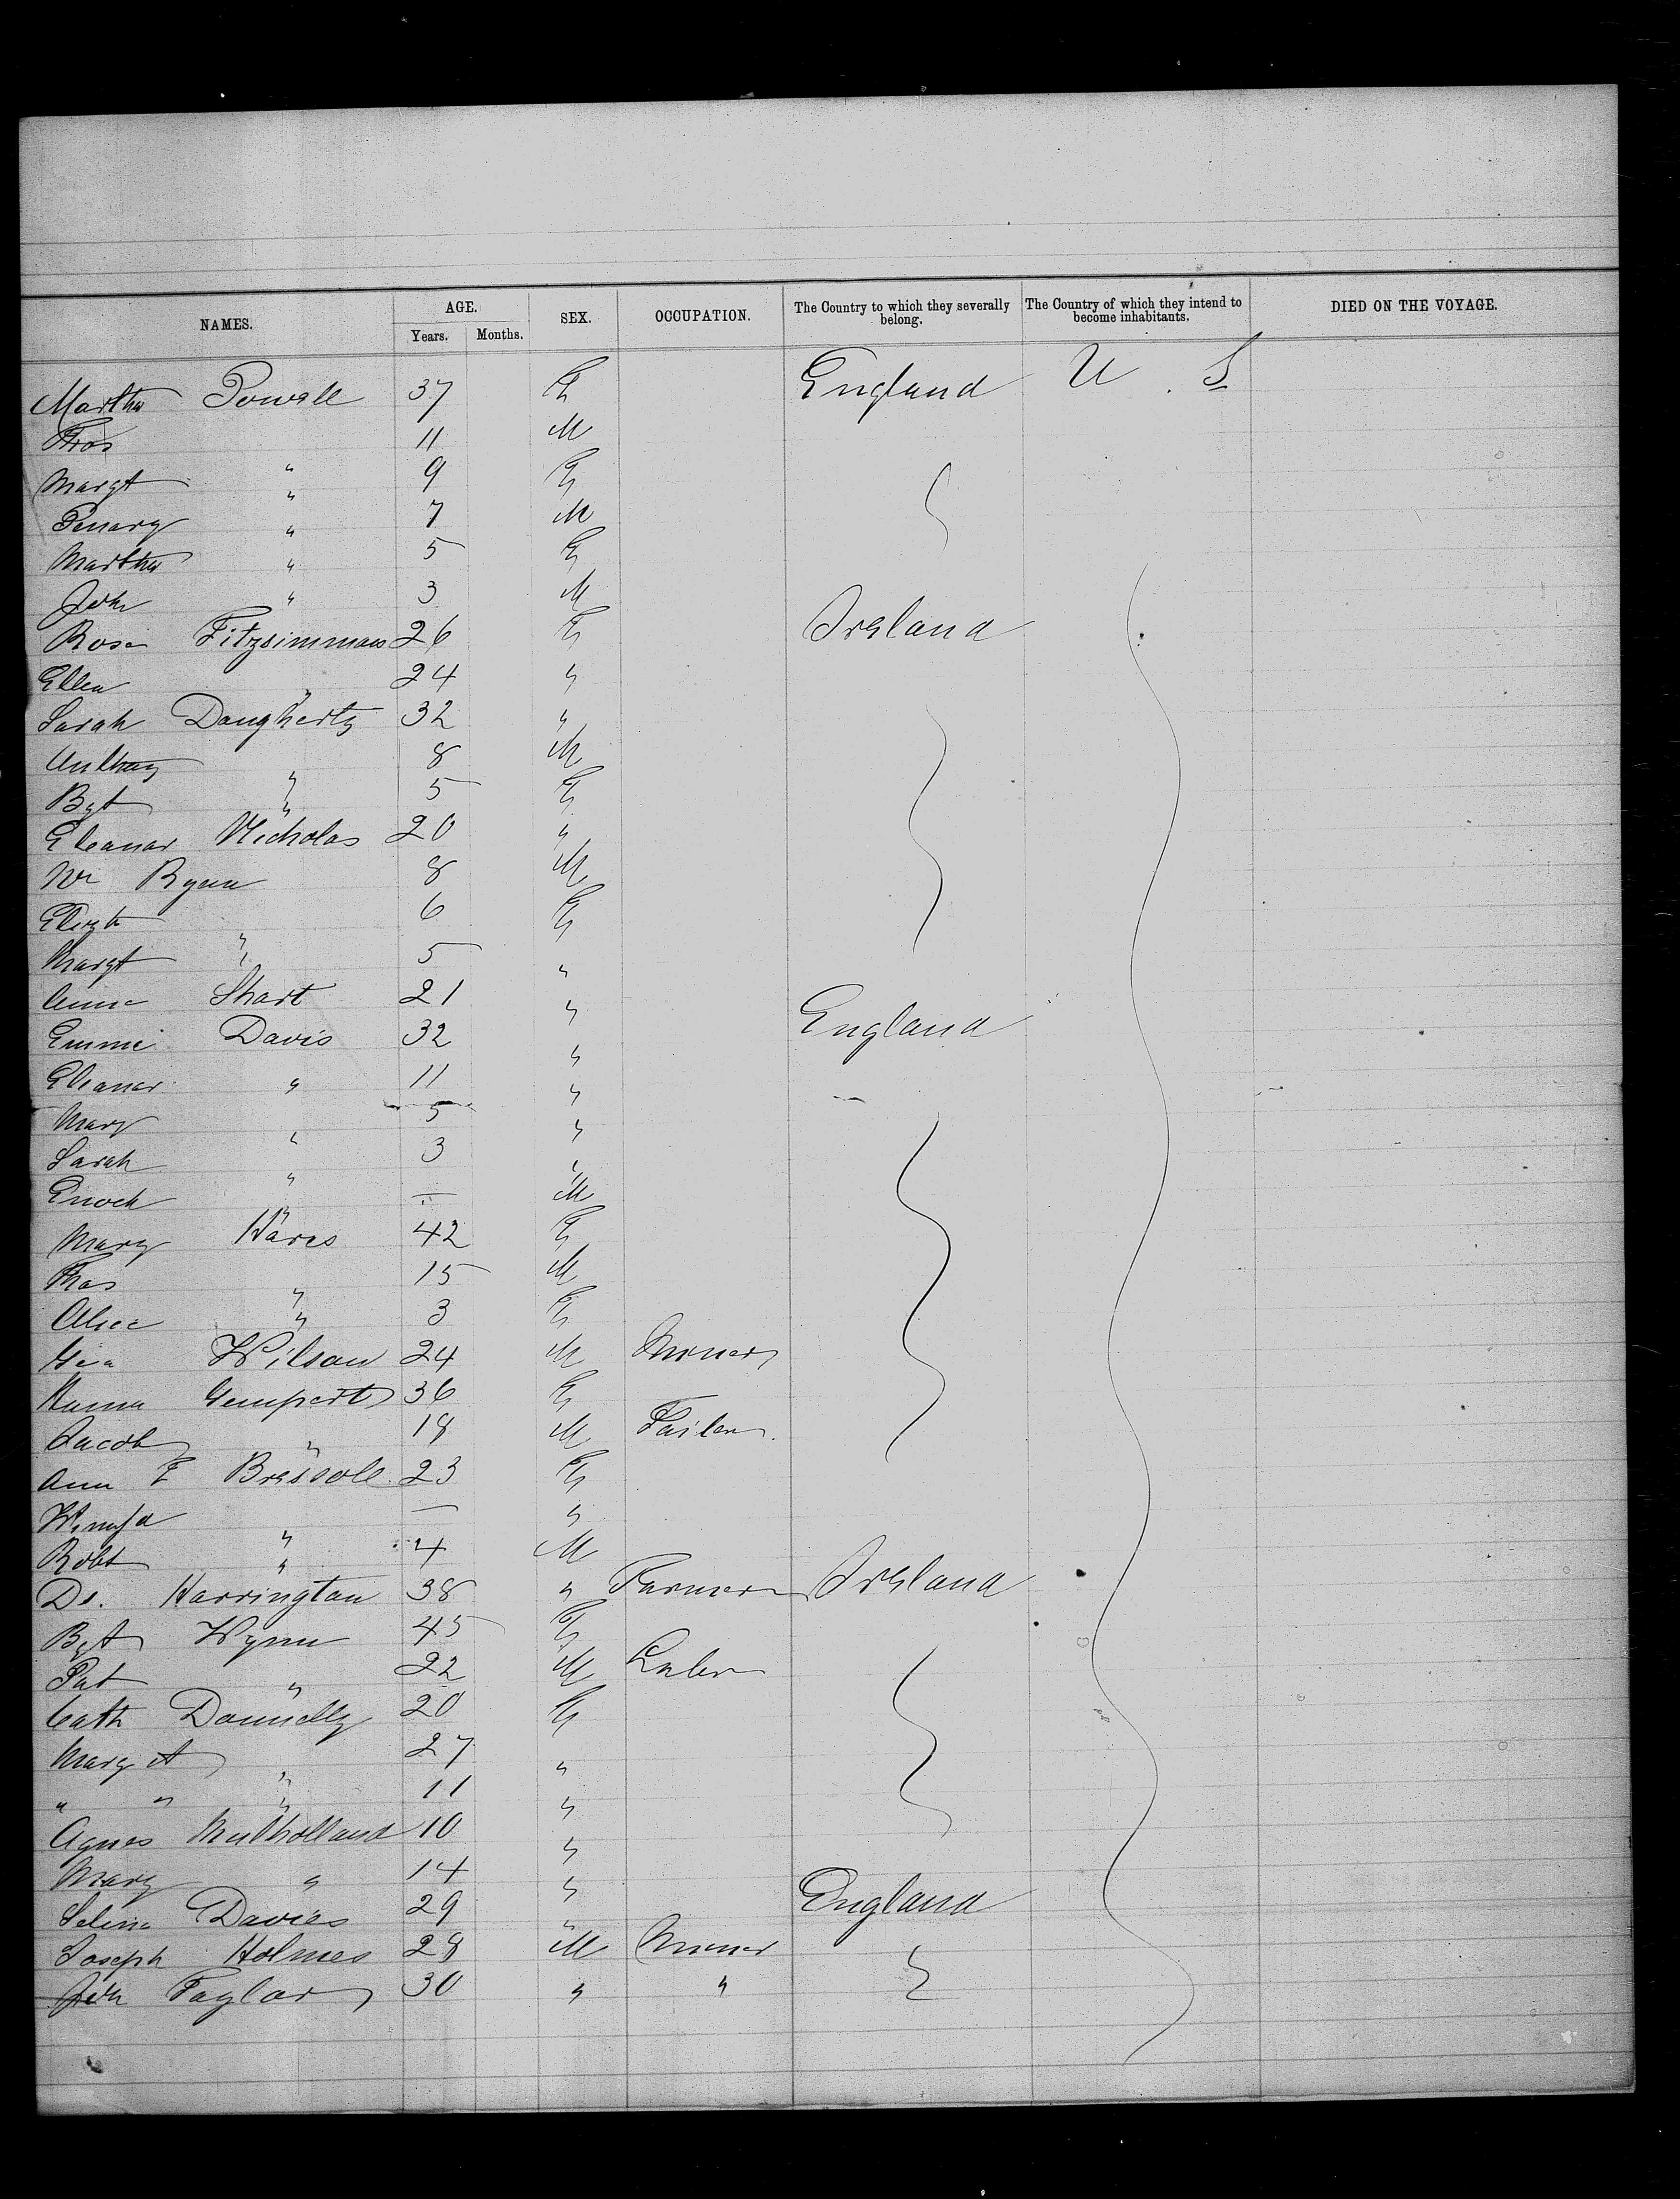 NAMES. AGE. SEX. OCCUPATION. The Country to which they severally belong. The Country of which they intend to become inhabitants. DIED ON THE VOYAGE.
Years. Months.
Martha Powell 37 F England U. S
Thos " 11 M
Margt " 9 F
" 7 M
Martha " 5 F
John " 3 M
Rose Fitzsimmons 26 F Ireland
Ellen " 24 "
Sarah Daugherty 32 "
Anthony " 8 M
Bgt " 5 F
Eleanor Nicholas 20 "
Wm Bynn 8 M
Elizth " 6 F
Margt " 5 "
Anne Short 21 "
Emma Davis 32 " England
Eleanor " 11 "
Mary " 5 "
Sarah " 3 "
Enoch " — M
Mary 42 F
Thos " 15 M
Alice " 3 F
Geo Wilson 24 M Miner
Gempert 36 F
Jacob " 18 M Tailor
Ann E 23 F
" — "
Robt " 4 M
Harrington 38 " Farmer Ireland
Bgt Wynn 45 F
Pat " 22 M Labr
Cath Donnelly 20 F
Margt " 27 "
" " " 11 "
Agnes Mulholland 10 "
Mary " 14 "
Selina Davies 29 " England
Joseph Holmes 28 M Miner
John Taylor 30 " "